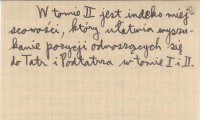 W tomie II jest indeks miej
scowości, który ułatwia wyszu-
kanie pozycji odnoszących się
do Tatr i Podtatrza w tomie I i II.